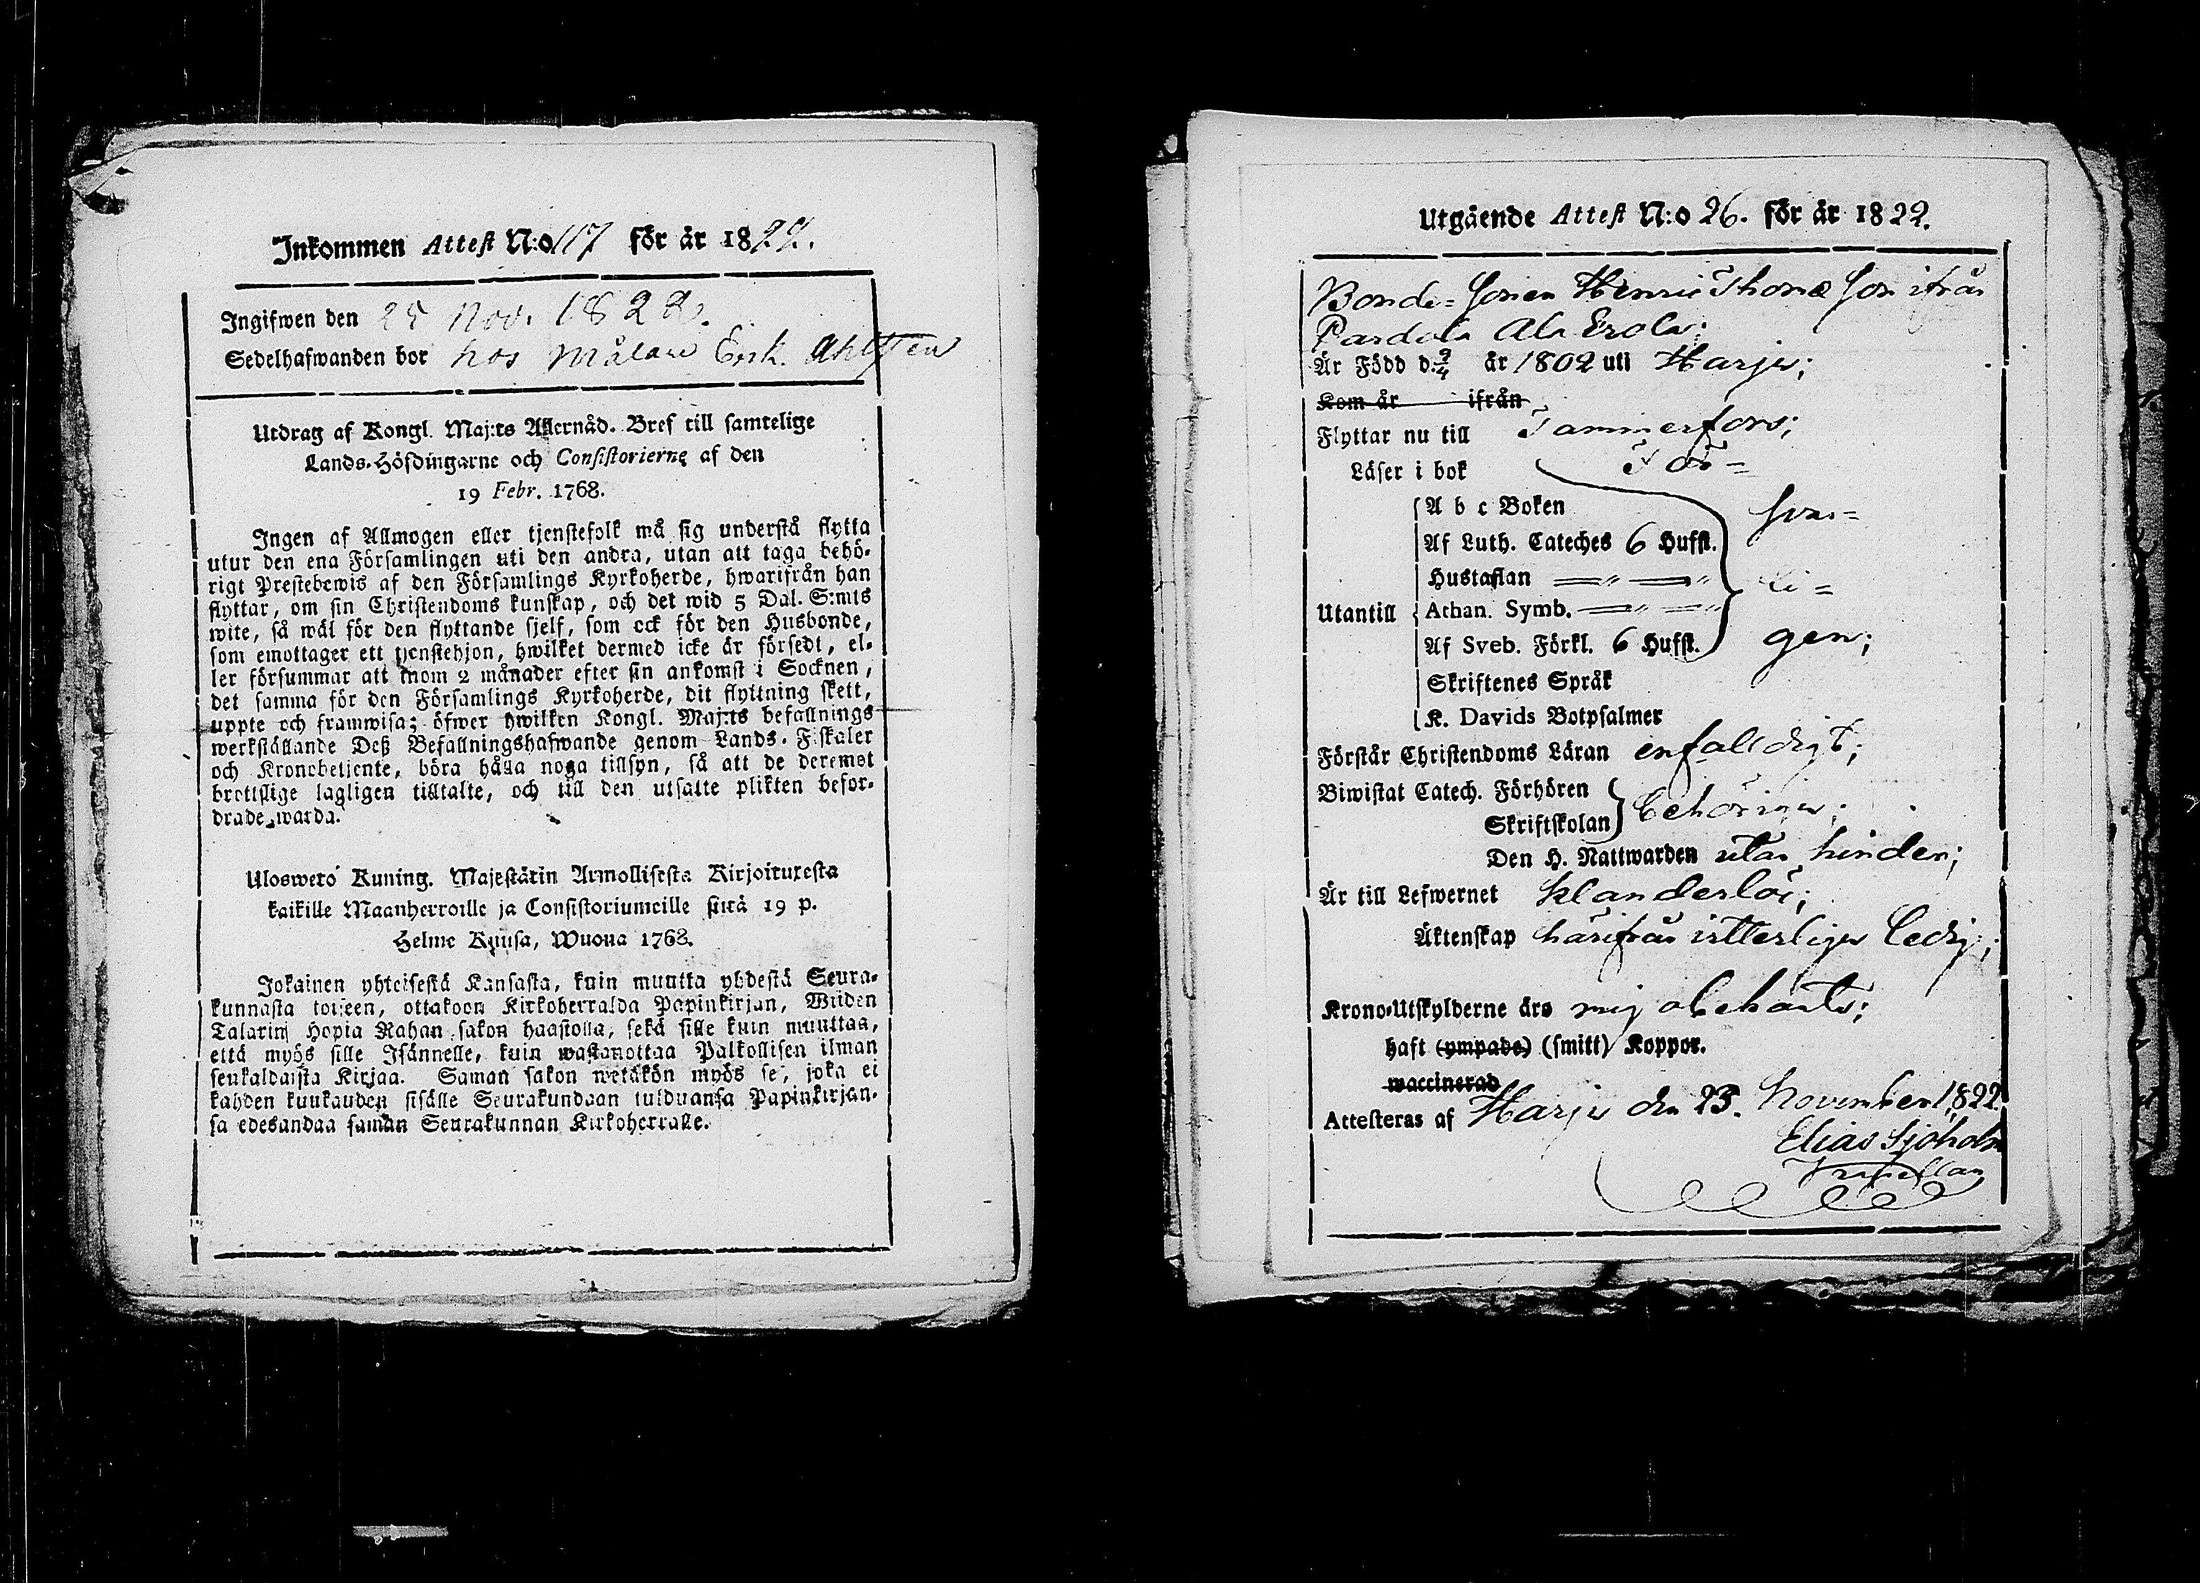 Inkommen Attest N:o 117 för år 1822.
Ingifwen den 25 Nov. 1822.
Sedelhafwanden bor hos Målare Erik Ahlsten
Utdrag af Kongl. Maj:ts Allernåd. Bref till samtelige
Lands-Höfdingarne och Consistorierne af den
19 Febr. 1768.
Ingen af Allmogen eller tjenstefolk må sig understå flytta
utur den ena Församlingen uti den andra, utan att taga behö-
rigt Prestebewis af den Församlings Kyrkoherde, hwarifrån han
flyttar, om sin Christendoms kunskap, och det wid 5 Dal. S:mts
wite, så wäl för den flyttande sjelf, som ock för den Husbonde,
som emottager ett tjenstehjon, hwilket dermed icke är försedt, el-
ler försummar att inom 2 månader efter sin ankomst i Socknen,
det samma för den Församlings Kyrkoherde, dit flyttning skett,
uppte och framwisa; öfwer hwilken Kongl. Maj:ts befallnings
werkställande Deß Befallningshafwande genom Lands-Fiskaler
och Kronobetjente, böra hålla noga tillsyn, så att de deremot
brottslige lagligen tilltalte, och till den utsatte plikten befor-
drade warda.
Ulosweto Kuning. Majestätin Armollisesta Kirjoituxesta
kaikille Maanherroille ja Consistoriumeille siitä 19 p.
Helme Kuusa, Wuona 1768.
Jokainen yhteisestä Kansasta, kuin muutta yhdestä Seura-
kunnasta toiseen, ottakoon Kirkoherralda Papinkirjan, Wiiden
Talarin Hopia Rahan sakon haastolla, sekä sille kuin muuttaa,
että myös sille Isännelle, kuin wastanottaa Palkollisen ilman
senkaldaista Kirjaa. Saman sakon wetäkön myös se, joka ei
kahden kuukauden sisälle Seurakundaan tulduansa Papinkirjan-
sa edesandaa saman Seurakunnan Kirkoherralle.
Utgående Attest N:o 26. för år 1822.
Bonde-Sonen Henric Thomæ Son ifrån
Pardola Ala Erola;
Är Född d. 9/4 år 1802 uti Harju;
Kom år ifrån
Flyttar nu till Tammerfors;
Läser i bok För-
A b c Boken svar-
Af Luth. Cateches 6 Hufst.
Hustaflan — " — " li-
Utantill Athan. Symb. — " — "
Af Sveb. Förkl. 6 Hufst. gen;
Skriftenes Språk
K. Davids Botpsalmer
Förstår Christendoms Läran enfalldigt;
Biwistat Catech. Förhören
Skriftskolan behörigen;
Den H. Nattwarden utan hinder;
Är till Lefwernet klanderlös;
Äktenskap härifrån witterligen ledig;
Krono-Utskylderne äro mig obekante;
haft (ympade) (smitt) Koppor.
waccinerad
Attesteras af Harju den 23. November 1822.
Elias Sjöholm